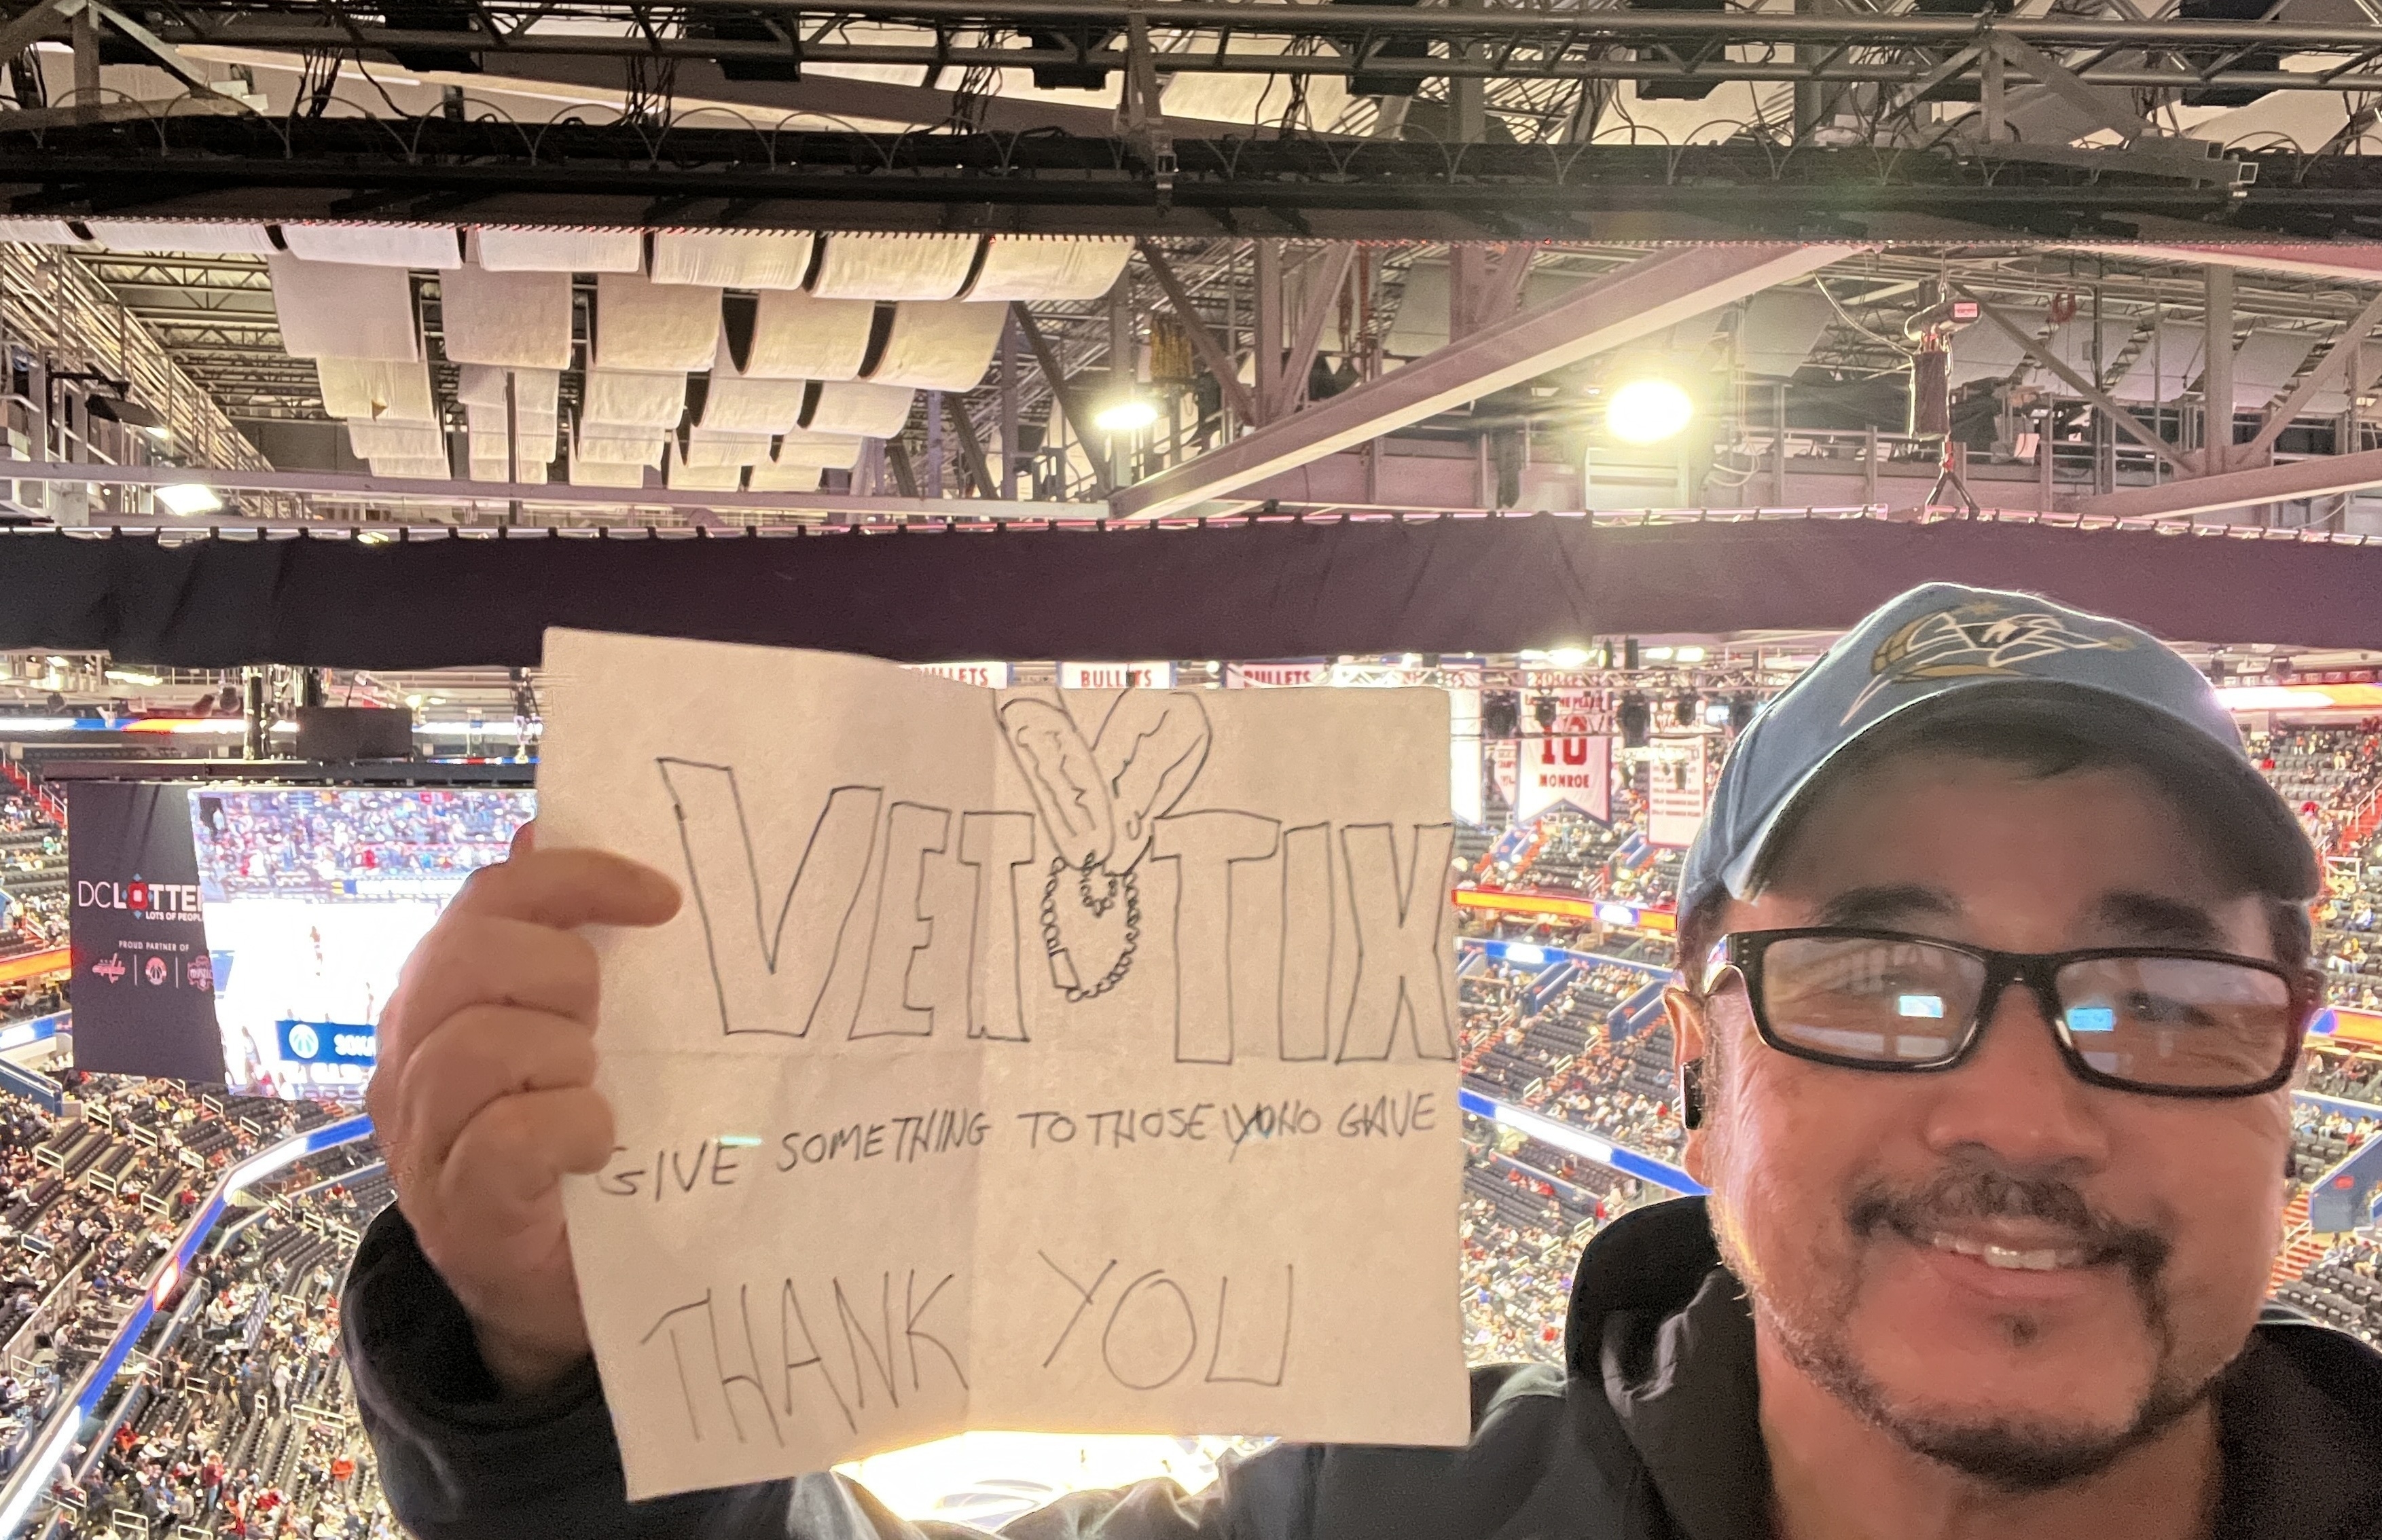 BULLETS
BULLETS
BULLETS
10
MONROE
VET TIX
GIVE SOMETHING TO THOSE WHO GAVE
THANK YOU
DC LOTTE
LOTS OF PEOPL
PROUD PARTNER OF